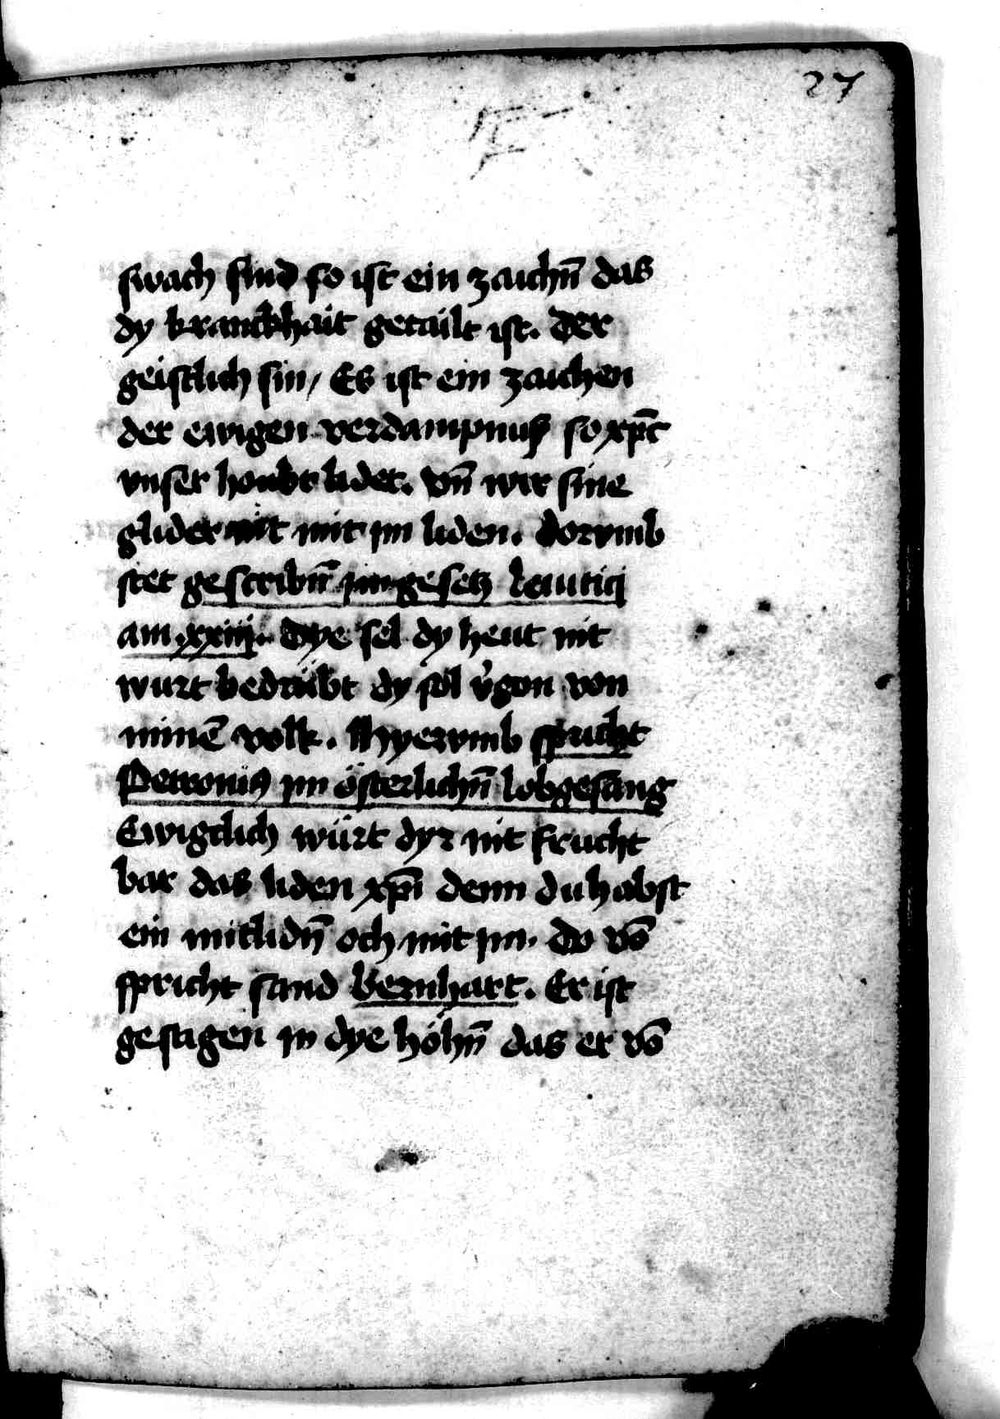 27
swach sind so ist ein zaichn̄ das
dy kranckhait getailt ist. Der
geistlich sin / Es ist ein zaichen
der ewigen verdampnuß so xp̄c
vnser houbt lidet. vn̄ wir sine
glider nit mit im liden. dorvmb
stet gescribn̄ im gesetz leuitici
am xxiij. Dye sel dy heut nit
wurt bedrübt dy sol v̓gon von
minē volk. Hyervmb spricht
Petronius im österlichn̄ lobgesang
Ewigclich würt dyr nit frucht
bar das liden xp̄i denn du habst
ein mitlidn̄ och mit im. Do vō
spricht sand bernhart. Er ist
gestigen in dye höhn̄ das er vō